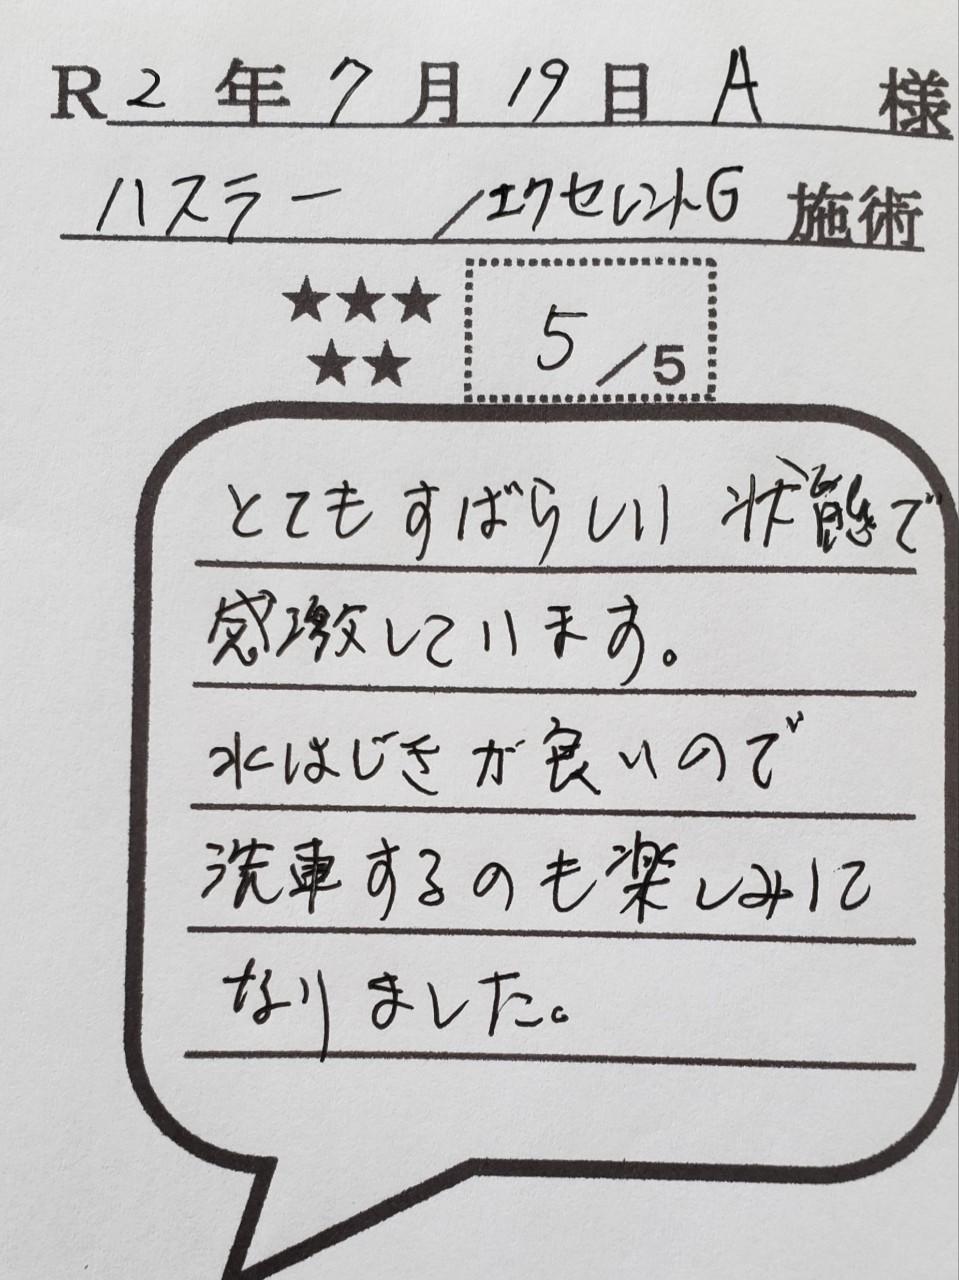 R2年7月19日 A 様
ハスラー /エクセレントG 施術
★★★
5/5
★★
とてもすばらしい 状態で
感激しています。
水はじきが良いので
洗車するのも楽しみに
なりました。